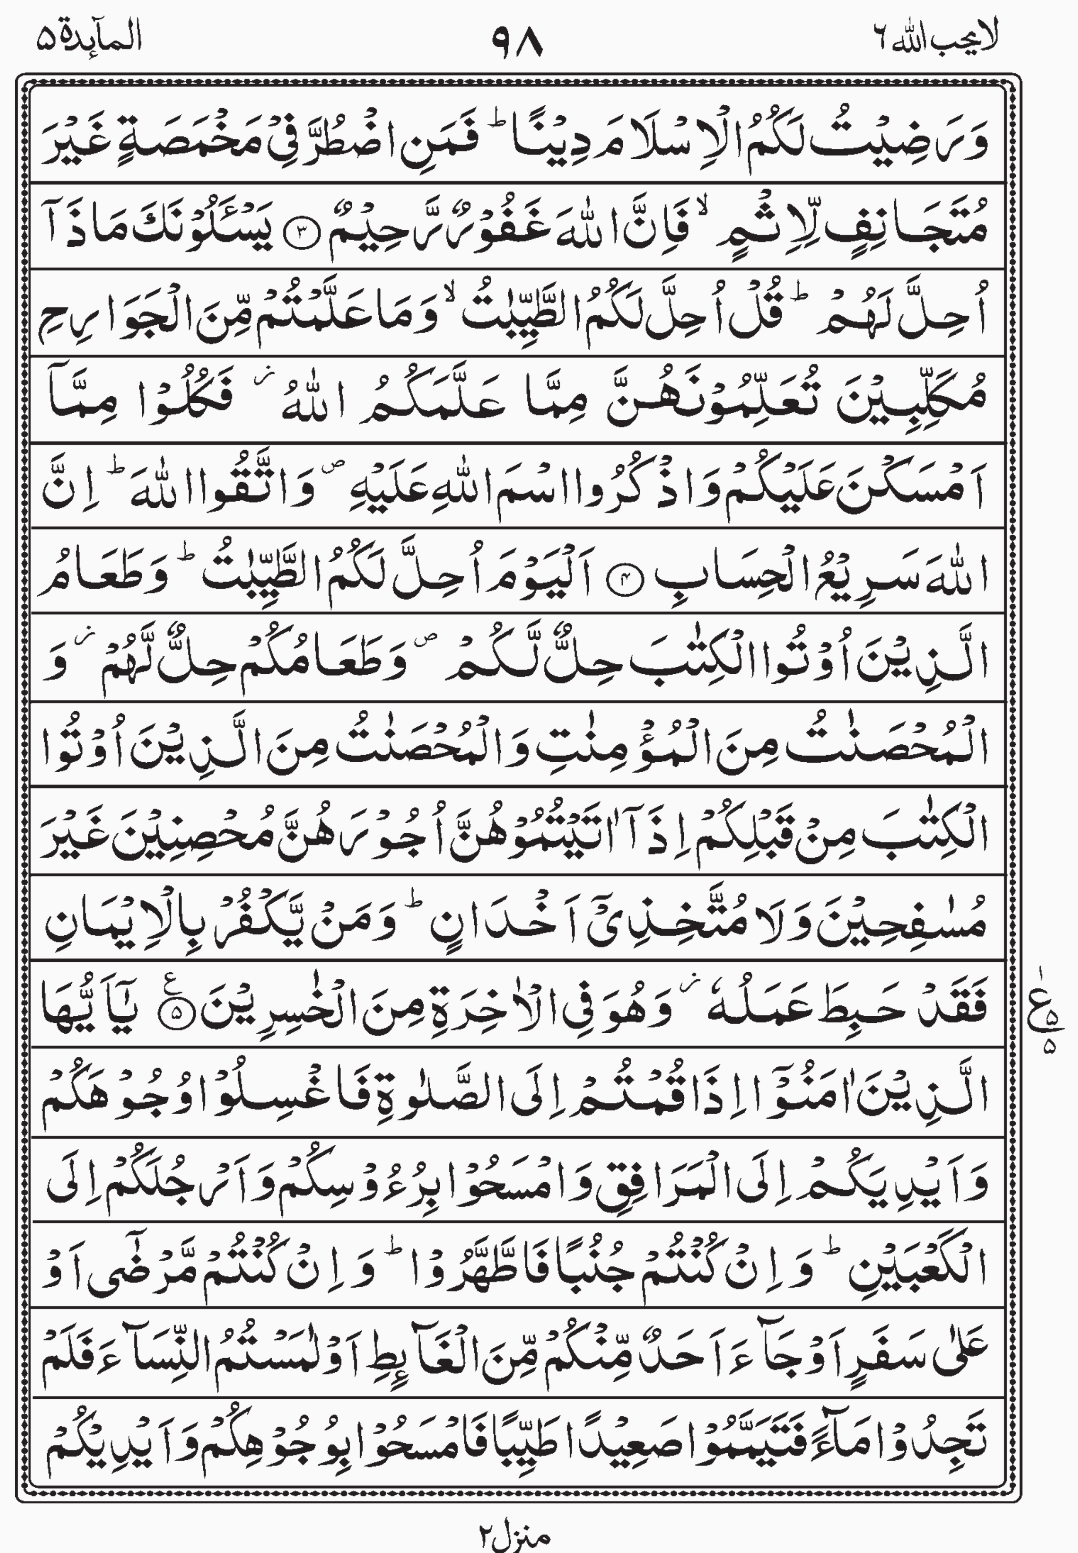 المآىِٕدة ۵
۹۸
لا یحب الله ۶
وَرَضِیْتُ لَكُمُ الْاِسْلَامَ دِیْنًا ؕ فَمَنِ اضْطُرَّ فِیْ مَخْمَصَةٍ غَیْرَ
مُتَجَانِفٍ لِّاِثْمٍ ۙ فَاِنَّ اللّٰهَ غَفُوْرٌ رَّحِیْمٌ ﴿۳﴾ یَسْـَٔلُوْنَكَ مَا ذَاۤ
اُحِلَّ لَهُمْ ؕ قُلْ اُحِلَّ لَكُمُ الطَّیِّبٰتُ ۙ وَمَا عَلَّمْتُمْ مِّنَ الْجَوَارِحِ
مُكَلِّبِیْنَ تُعَلِّمُوْنَهُنَّ مِمَّا عَلَّمَكُمُ اللّٰهُ ؗ فَكُلُوْا مِمَّاۤ
اَمْسَكْنَ عَلَیْكُمْ وَاذْكُرُوا اسْمَ اللّٰهِ عَلَیْهِ ۪ وَاتَّقُوا اللّٰهَ ؕ اِنَّ
اللّٰهَ سَرِیْعُ الْحِسَابِ ﴿۴﴾ اَلْیَوْمَ اُحِلَّ لَكُمُ الطَّیِّبٰتُ ؕ وَطَعَامُ
الَّذِیْنَ اُوْتُوا الْكِتٰبَ حِلٌّ لَّكُمْ ۪ وَطَعَامُكُمْ حِلٌّ لَّهُمْ ؗ وَ
الْمُحْصَنٰتُ مِنَ الْمُؤْمِنٰتِ وَالْمُحْصَنٰتُ مِنَ الَّذِیْنَ اُوْتُوا
الْكِتٰبَ مِنْ قَبْلِكُمْ اِذَاۤ اٰتَیْتُمُوْهُنَّ اُجُوْرَهُنَّ مُحْصِنِیْنَ غَیْرَ
مُسٰفِحِیْنَ وَلَا مُتَّخِذِیْۤ اَخْدَانٍ ؕ وَمَنْ یَّكْفُرْ بِالْاِیْمَانِ
فَقَدْ حَبِطَ عَمَلُهٗ ؗ وَهُوَ فِی الْاٰخِرَةِ مِنَ الْخٰسِرِیْنَ ﴿۵﴾ ع یٰۤاَیُّهَا
ع ۱ ۵ ۵
الَّذِیْنَ اٰمَنُوْۤا اِذَا قُمْتُمْ اِلَی الصَّلٰوةِ فَاغْسِلُوْا وُجُوْهَكُمْ
وَاَیْدِیَكُمْ اِلَی الْمَرَافِقِ وَامْسَحُوْا بِرُءُوْسِكُمْ وَاَرْجُلَكُمْ اِلَی
الْكَعْبَیْنِ ؕ وَاِنْ كُنْتُمْ جُنُبًا فَاطَّهَّرُوْا ؕ وَاِنْ كُنْتُمْ مَّرْضٰۤی اَوْ
عَلٰی سَفَرٍ اَوْجَآءَ اَحَدٌ مِّنْكُمْ مِّنَ الْغَآىِٕطِ اَوْ لٰمَسْتُمُ النِّسَآءَ فَلَمْ
تَجِدُوْا مَآءً فَتَیَمَّمُوْا صَعِیْدًا طَیِّبًا فَامْسَحُوْا بِوُجُوْهِكُمْ وَاَیْدِیْكُمْ
منزل ۲